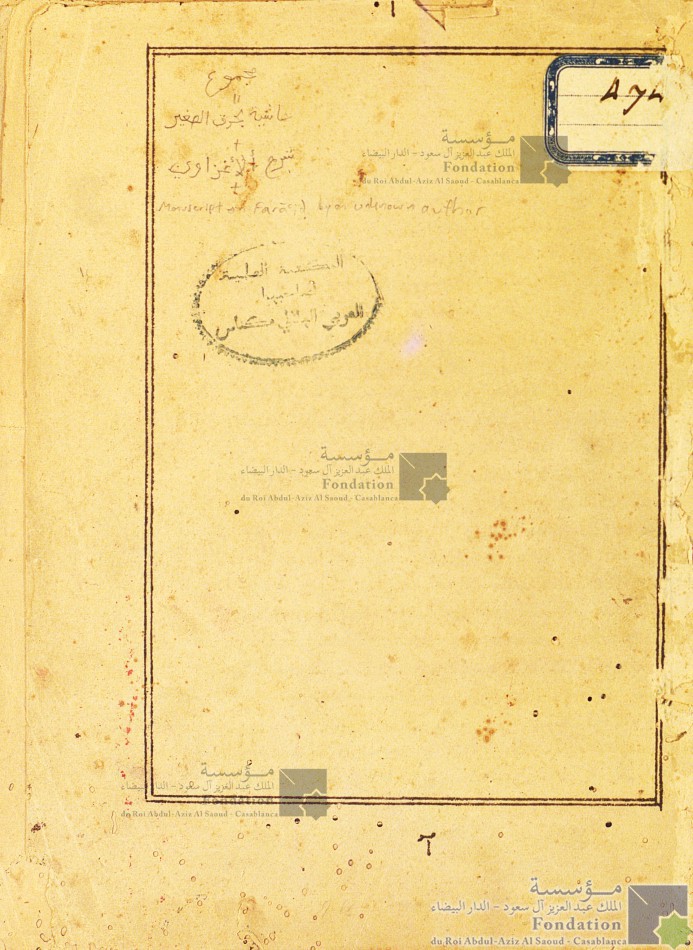 مجموع
"
حاشية بحرق الصغير
+
شرح الأغزاوي
+
Manuscript on Farāʾiḍ by an unknown author
المكتبة العلمية
العربي مكناس
مؤسسة
الملك عبد العزيز آل سعود - الدار البيضاء
Fondation
du Roi Abdul-Aziz Al Saoud - Casablanca
مؤسسة
الملك عبد العزيز آل سعود - الدار البيضاء
Fondation
du Roi Abdul-Aziz Al Saoud - Casablanca
مؤسسة
الملك عبد العزيز آل سعود - الدار البيضاء
Fondation
du Roi Abdul-Aziz Al Saoud - Casablanca
مؤسسة
الملك عبد العزيز آل سعود - الدار البيضاء
Fondation
du Roi Abdul-Aziz Al Saoud - Casablanca